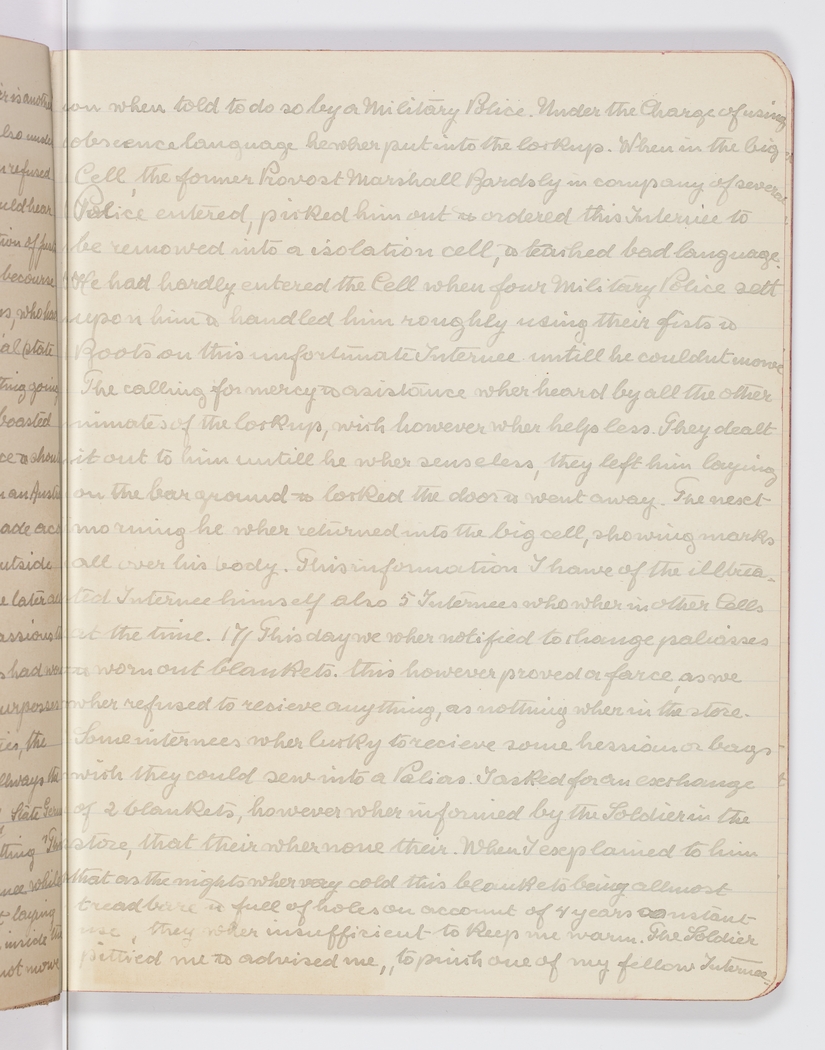 on when told to do so by a Military Police. Under the Charge of using
obscence language he wher put into the lockup. When in the big
Cell, the former Provost Marshall Bardsly in company of several
Police entered, picked him out & ordered this Internee to
be remowed into a isolation cell, & teached bad language.
He had hardly entered the Cell when four Military Police sett
upon him & handled him roughly using their fists &
Boots on this unfortunate Internee untill he couldnt mowe
The calling for mercy & asistance wher heard by all the other
inmates of the lockup, wich however wher helpless. They dealt
it out to him untill he wher senseless, they left him laying
on the bar ground & locked the door & went away. The nesct
morning he wher returned into the big cell, showing marks
all over his body. This information I hawe of the illtrea-
ted Internee himself also 5 Internees who wher in other Cells
at the time. 17/ This day we wher notified to change paliasses
& worn out blankets. this however proved a farce, as we
wher refused to recieve anything, as nothing wher in the store.
Some internees wher lucky to recieve some hessian or bags
wich they could sew into a Palias. I asked for an exchange
of 2 blankets, however wher informed by the Soldier in the
store, that their wher none their. When I explained to him
that as the nights wher very cold this blankets being allmost
treadbare & full of holes on account of 4 years constant
use, they wher insufficient to keep me warm. The Soldier
pittied me & advised me,, to pinch one of my fellow Internee

er is anoth
also under
refused
uld hear
tion of
becourse
s, who
al state
thing going
boasted
ce & shou
an Aust
ade acc
utside
e later
assions
s had wo
urposses
ies, the
allways the
State
thing "Th
nce while
laying
inside the
not mowe